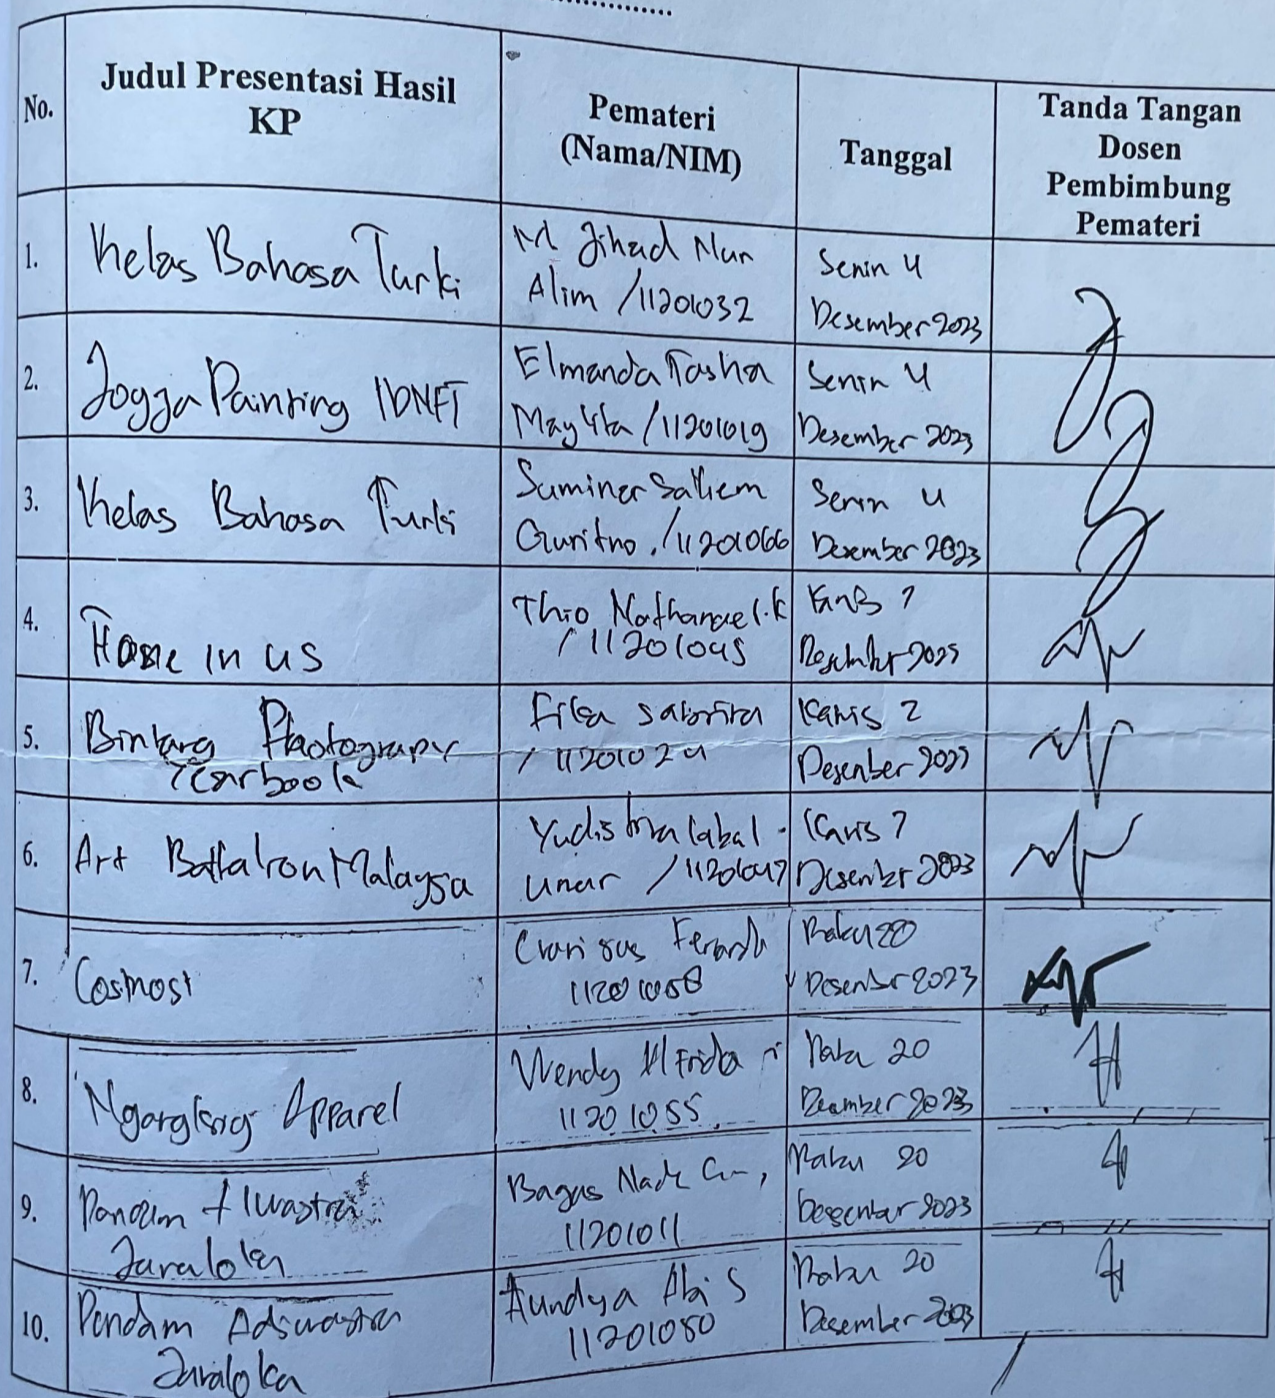 No.
Judul Presentasi Hasil
KP
Pemateri
(Nama/NIM)
Tanggal
Tanda Tangan
Dosen
Pembimbung
Pemateri
1.
Kelas Bahasa Turki
M Jihad Nur
Alim /11201032
Senin 4
Desember 2023
2.
Jogja Painting IDNFT
Elmanda Tasha
/11201019
Senin 4
Desember 2023
3.
Kelas Bahasa Turki
Suminar
Guritno. /11201066
Senin 4
Desember 2023
4.
Home in us
Thio Nathanael.K
/11201045
Kamis 7
Desember 2023
5.
Bintang Photography
Yearbook
/11201024
Kamis 7
Desember 2023
6.
Art Battalion Malaysa
Yudistira
Unar
Kamis 7
Desember 2023
7.
Cosmost
11201058
Rabu 20
Desember 2023
8.
Apparel
Wendy
11201055
Rabu 20
Desember 2023
9.
Jaraloka
Bagas
11201011
Rabu 20
Desember 2023
10.
Pendam
Jaraloka
Abi S
11201050
Rabu 20
Desember 2023